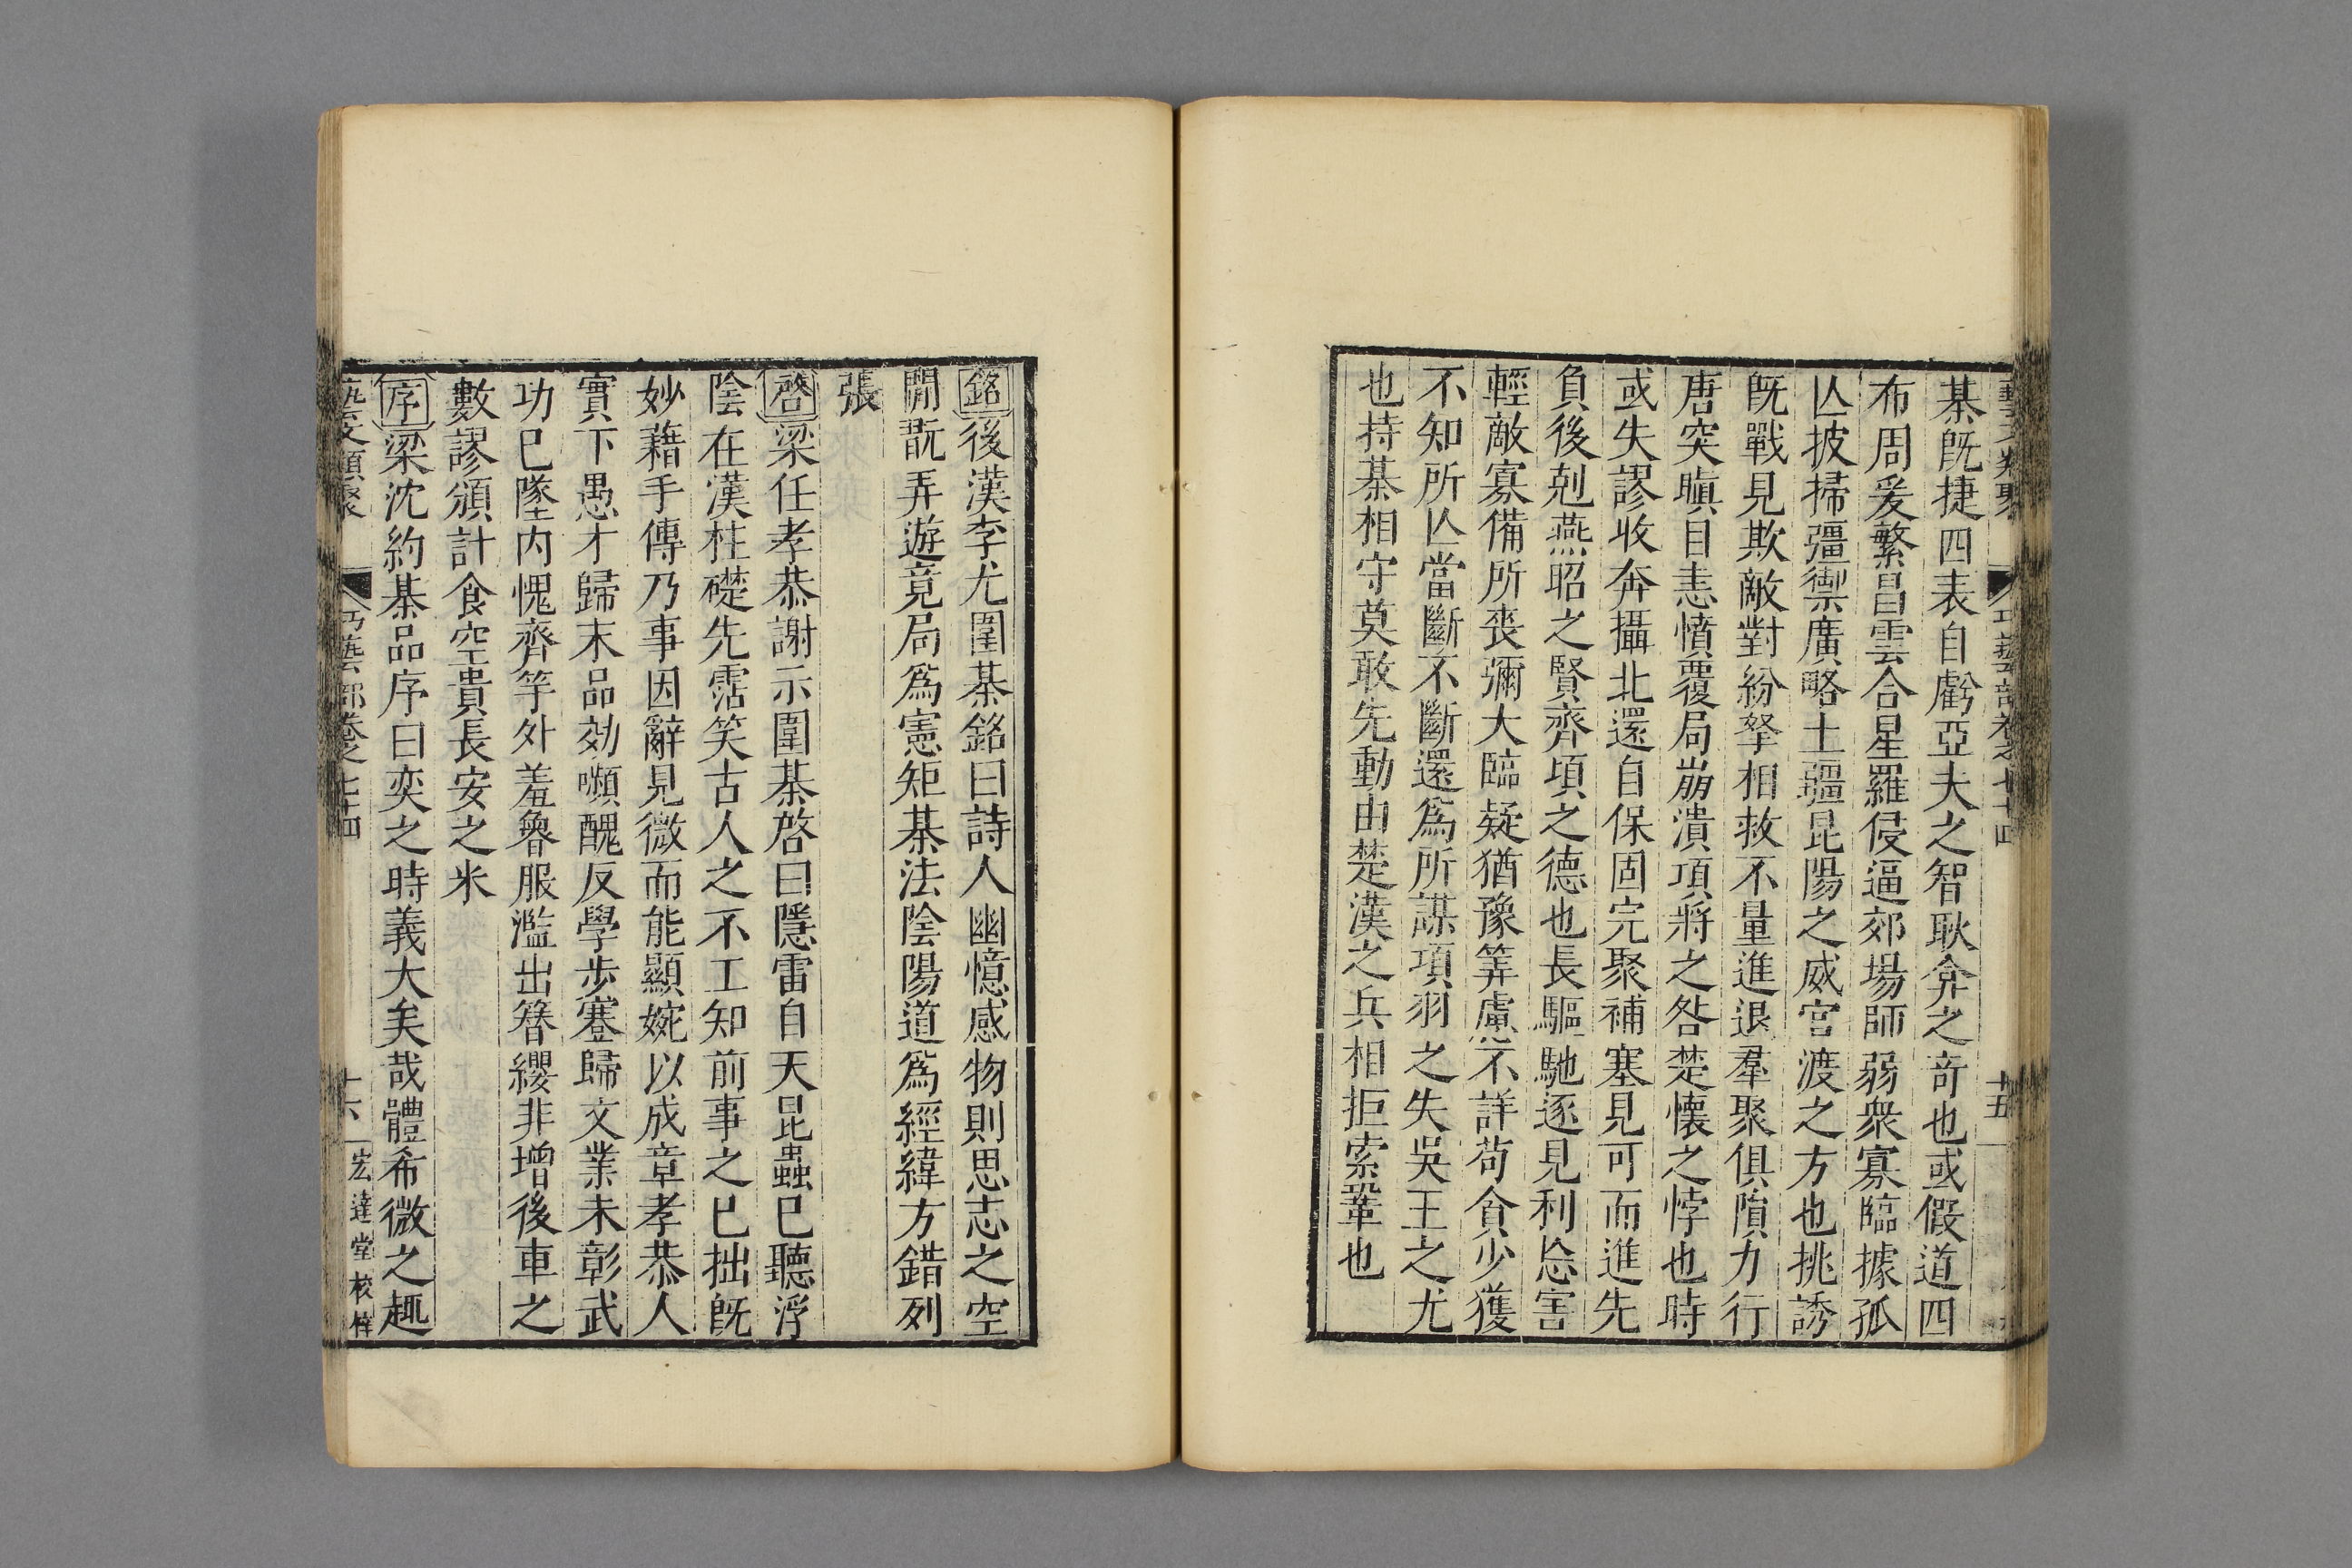 藝文類聚 巧藝部卷之七十四 十五
棊旣捷四表自虧亞夫之智耿弇之奇也或假道四
布周爰繁昌雲合星羅侵逼郊塲師弱衆寡臨據孤
亾披掃彊禦廣略土疆昆陽之威官渡之方也挑誘
旣戰見欺敵對紛拏相救不量進退羣聚俱隕力行
唐突瞋目恚憤覆局崩潰項將之咎楚懷之悖也時
或失謬收奔攝北還自保固完聚補塞見可而進先
負後剋燕昭之賢齊頃之德也長驅馳逐見利忩害
輕敵寡備所喪彌大臨疑猶豫筭慮不詳苟貪少獲
不知所亾當斷不斷還爲所謀項羽之失吳王之尤
也持棊相守莫敢先動由楚漢之兵相拒索鞏也
銘後漢李尤圍棊銘曰詩人幽憶感物則思志之空
閒翫弄遊竟局爲憲矩棊法陰陽道爲經緯方錯列
張
啓梁任孝恭謝示圍棊啓曰隱雷自天昆蟲已聽浮
陰在漢柱礎先霑笑古人之不工知前事之已拙旣
妙藉手傳乃事因辭見微而能顯婉以成章孝恭人
實下愚才歸末品効嚬醜反學步蹇歸文業未彰武
功已墜内愧齊竽外羞魯服濫出簪纓非增後車之
數謬頒計食空貴長安之米
序梁沈約棊品序曰奕之時義大矣哉體希微之趣
藝文類聚 巧藝部卷之七十四 十六 宏達堂校梓